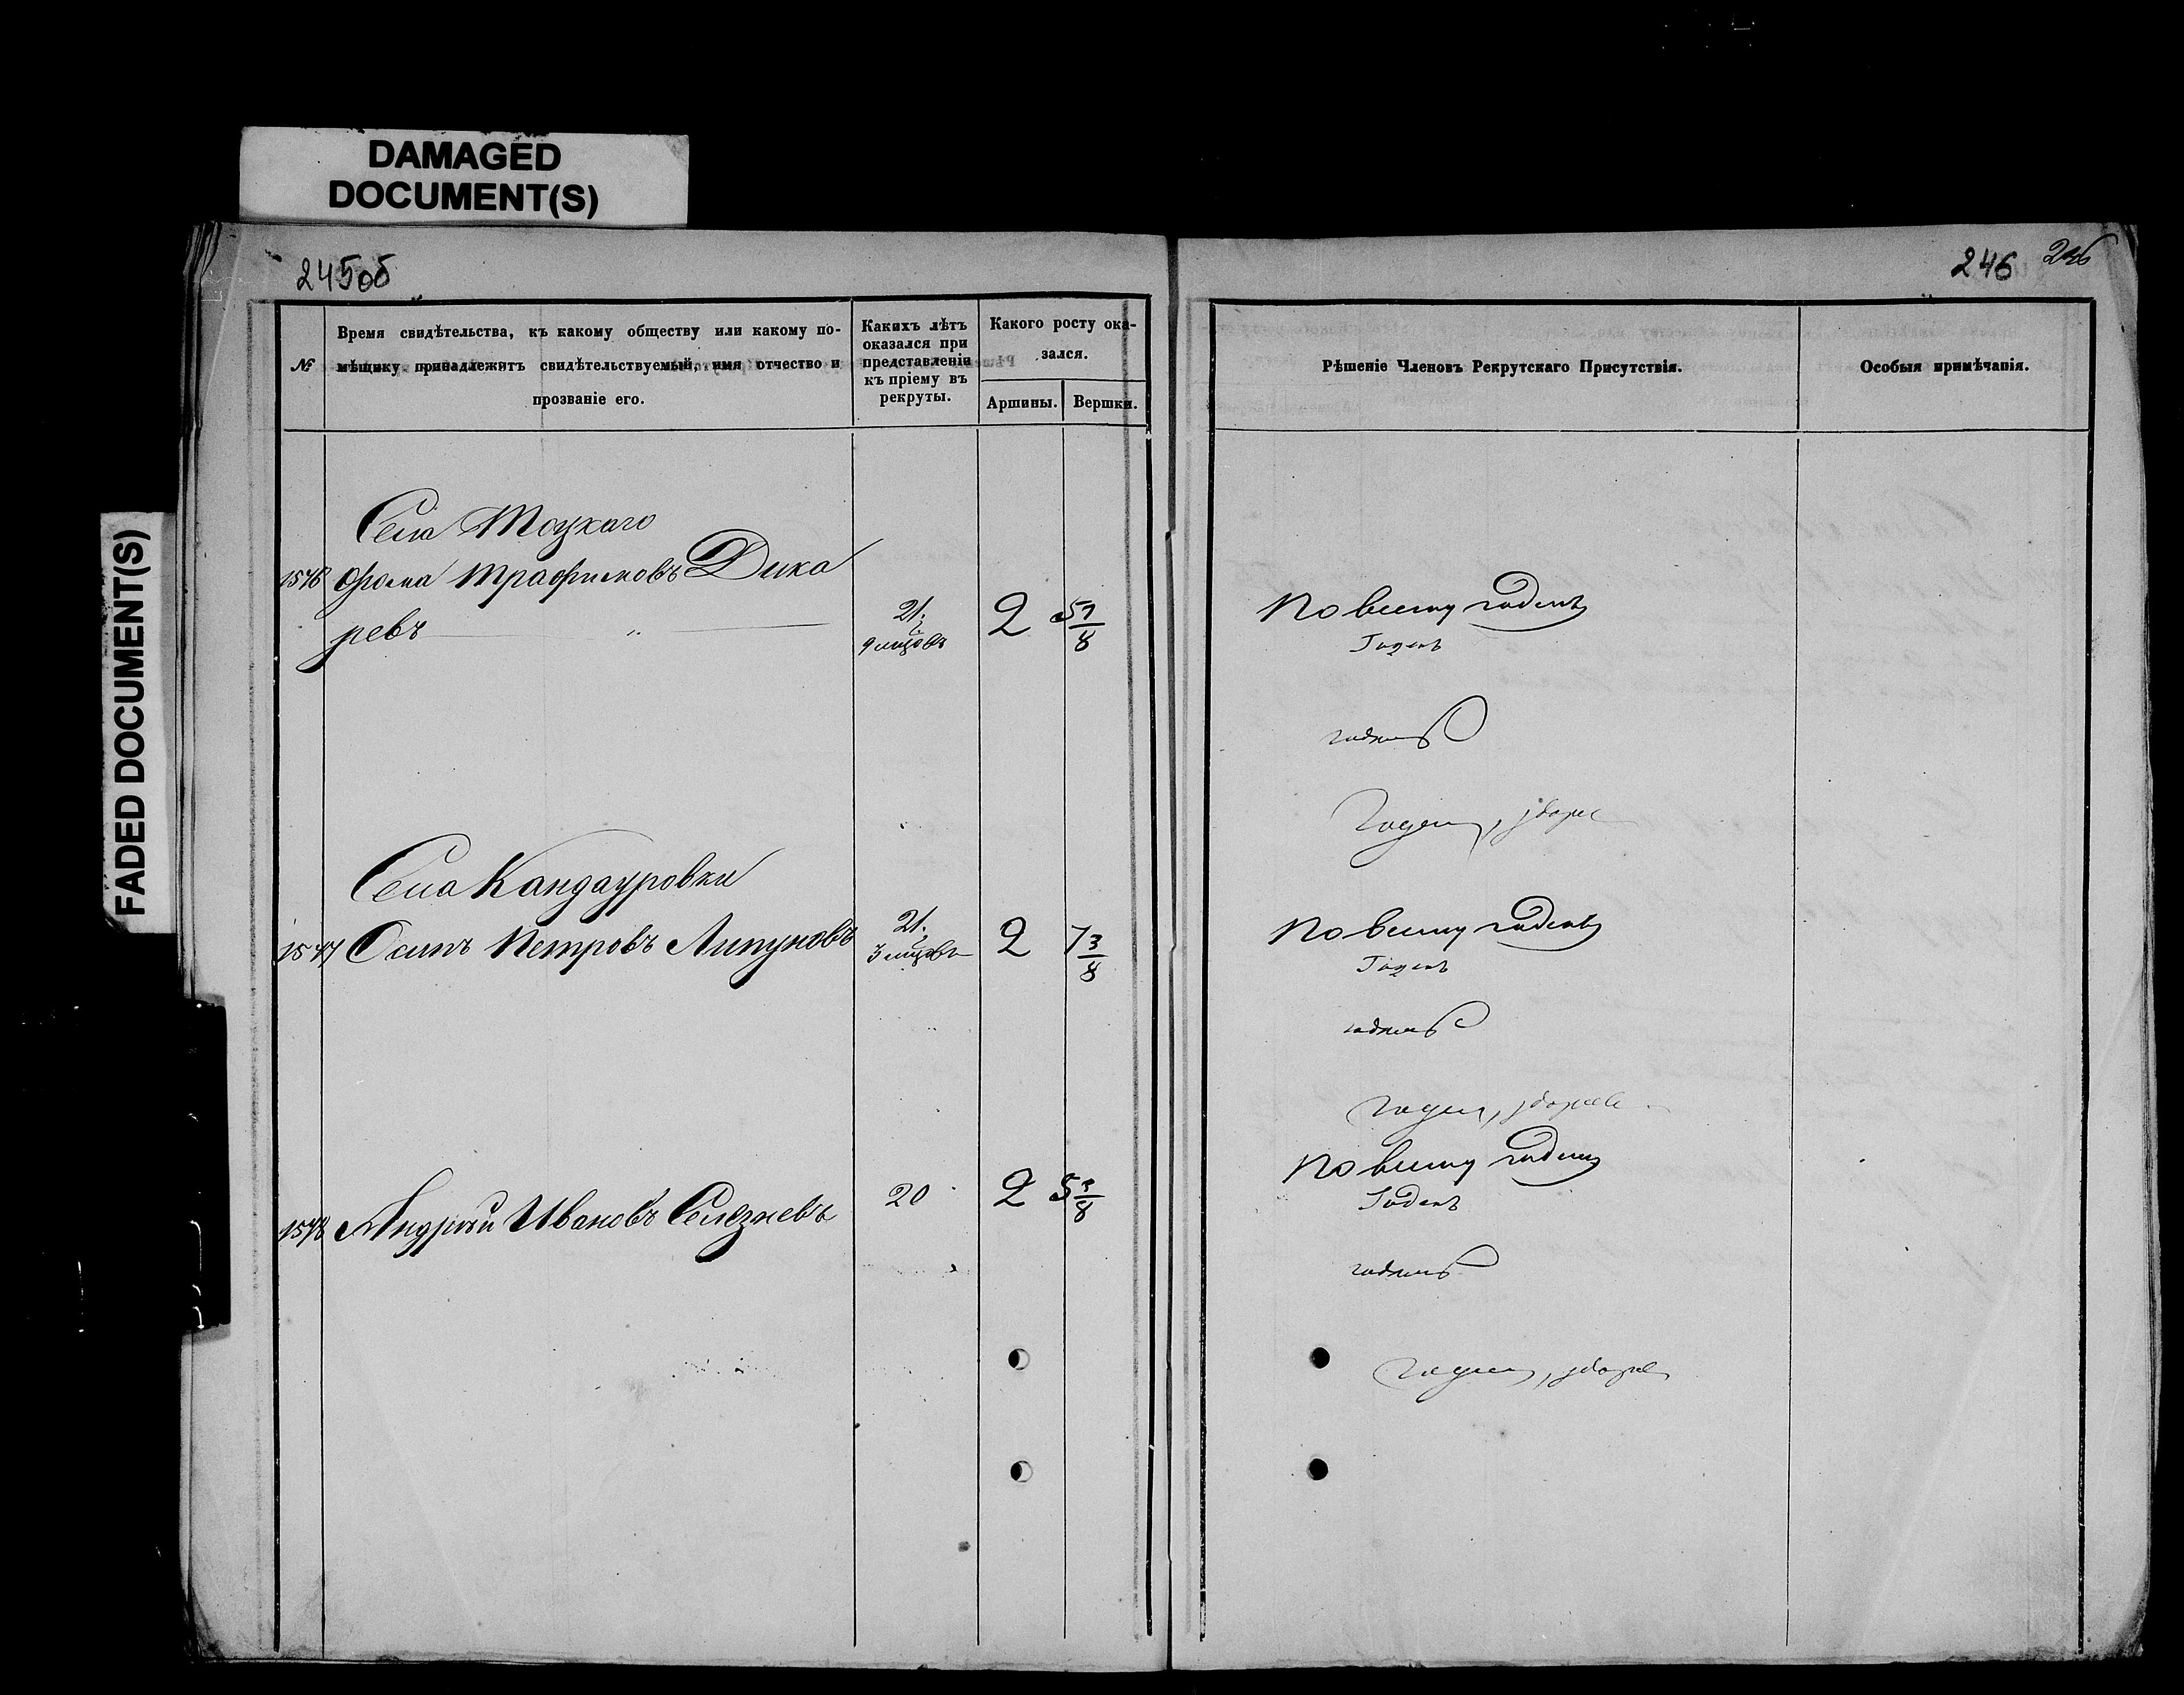 DAMAGED
DOCUMENT(S)
FADED DOCUMENT(S)
245об
№
Время свидѣтельства, къ какому обществу или какому по-
мѣщику принадлежитъ свидѣтельствуемый, имя отчество и
прозваніе его.
Какихъ лѣтъ
оказался при
представленіи
къ пріему въ
рекруты.
Какого росту ока-
зался.
Аршины.
Вершки.
Села Тоцкаго
1576 Фома Трафимовъ Дика
ревъ
21.
9 мцовъ
2
5 1/8
Села Кандауровки
1577 Осипъ Петровъ Липуновъ
21.
3 мцовъ
2
7 3/8
1578 Андрей Ивановъ Селезневъ
20
2
246
Рѣшеніе Членовъ Рекрутскаго Присутствія.
Особыя примѣчанія.
По всему годенъ
Годенъ
годенъ
Годенъ,
По всему годенъ
Годенъ
годенъ
Годенъ,
По всему годенъ
Годенъ
годенъ
Годенъ,